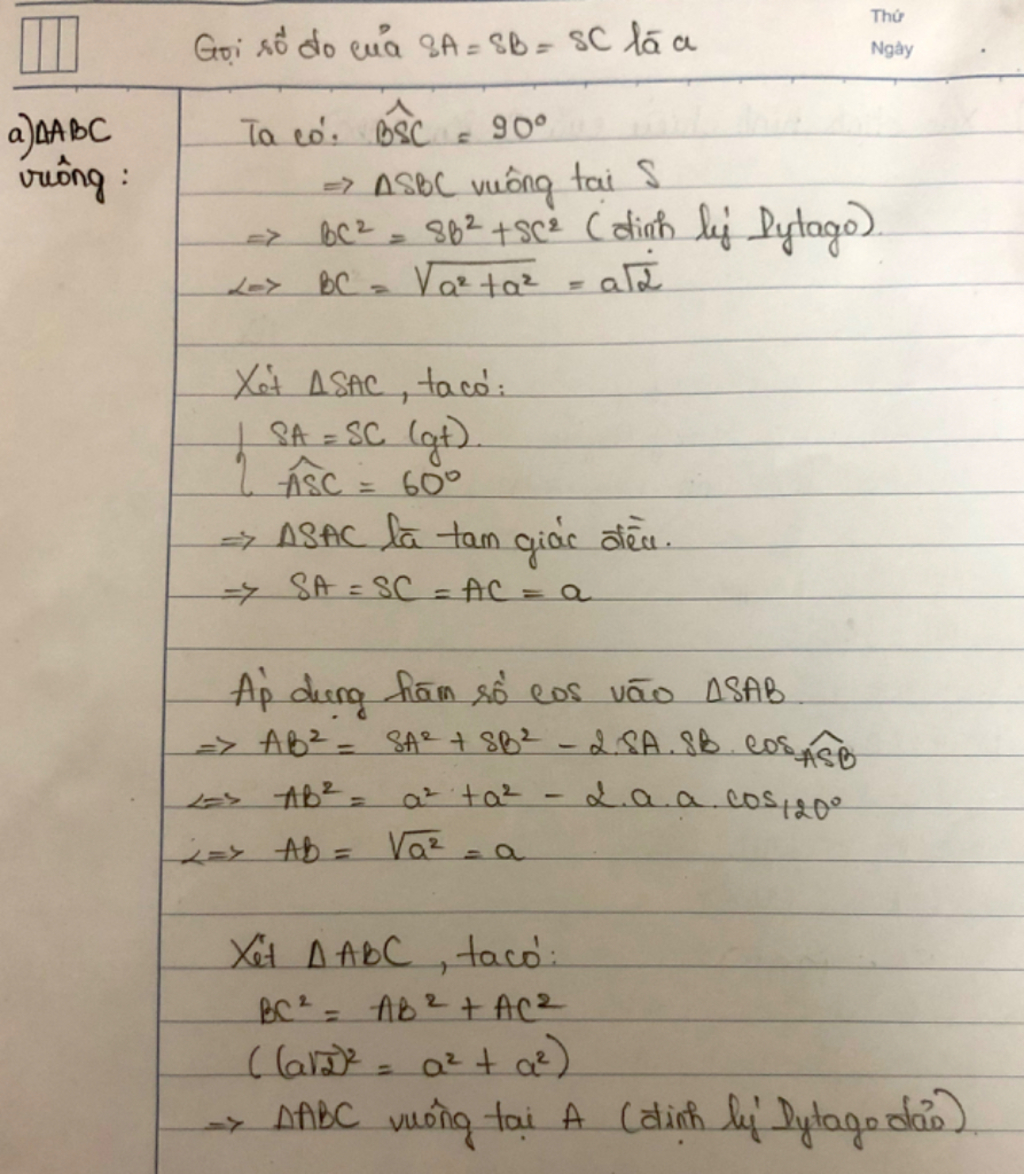 Thứ
Ngày
Gọi số đo của SA = SB = SC là a
a) ΔABC
vuông :
Ta có: \widehat{BSC} = 90°
=> ΔSBC vuông tại S
=> BC² = SB² + SC² (định lý Pytago).
<=> BC = √(a² + a²) = a√2
Xét ΔSAC, ta có:
{ SA = SC (gt).
{ \widehat{ASC} = 60°
=> ΔSAC là tam giác đều.
=> SA = SC = AC = a
Áp dụng hàm số cos vào ΔSAB
=> AB² = SA² + SB² - 2.SA.SB.cos \widehat{ASB}
<=> AB² = a² + a² - 2.a.a.cos120°
<=> AB = √a² = a
Xét ΔABC, ta có:
BC² = AB² + AC²
((a√2)² = a² + a²)
=> ΔABC vuông tại A (định lý Pytago đảo).